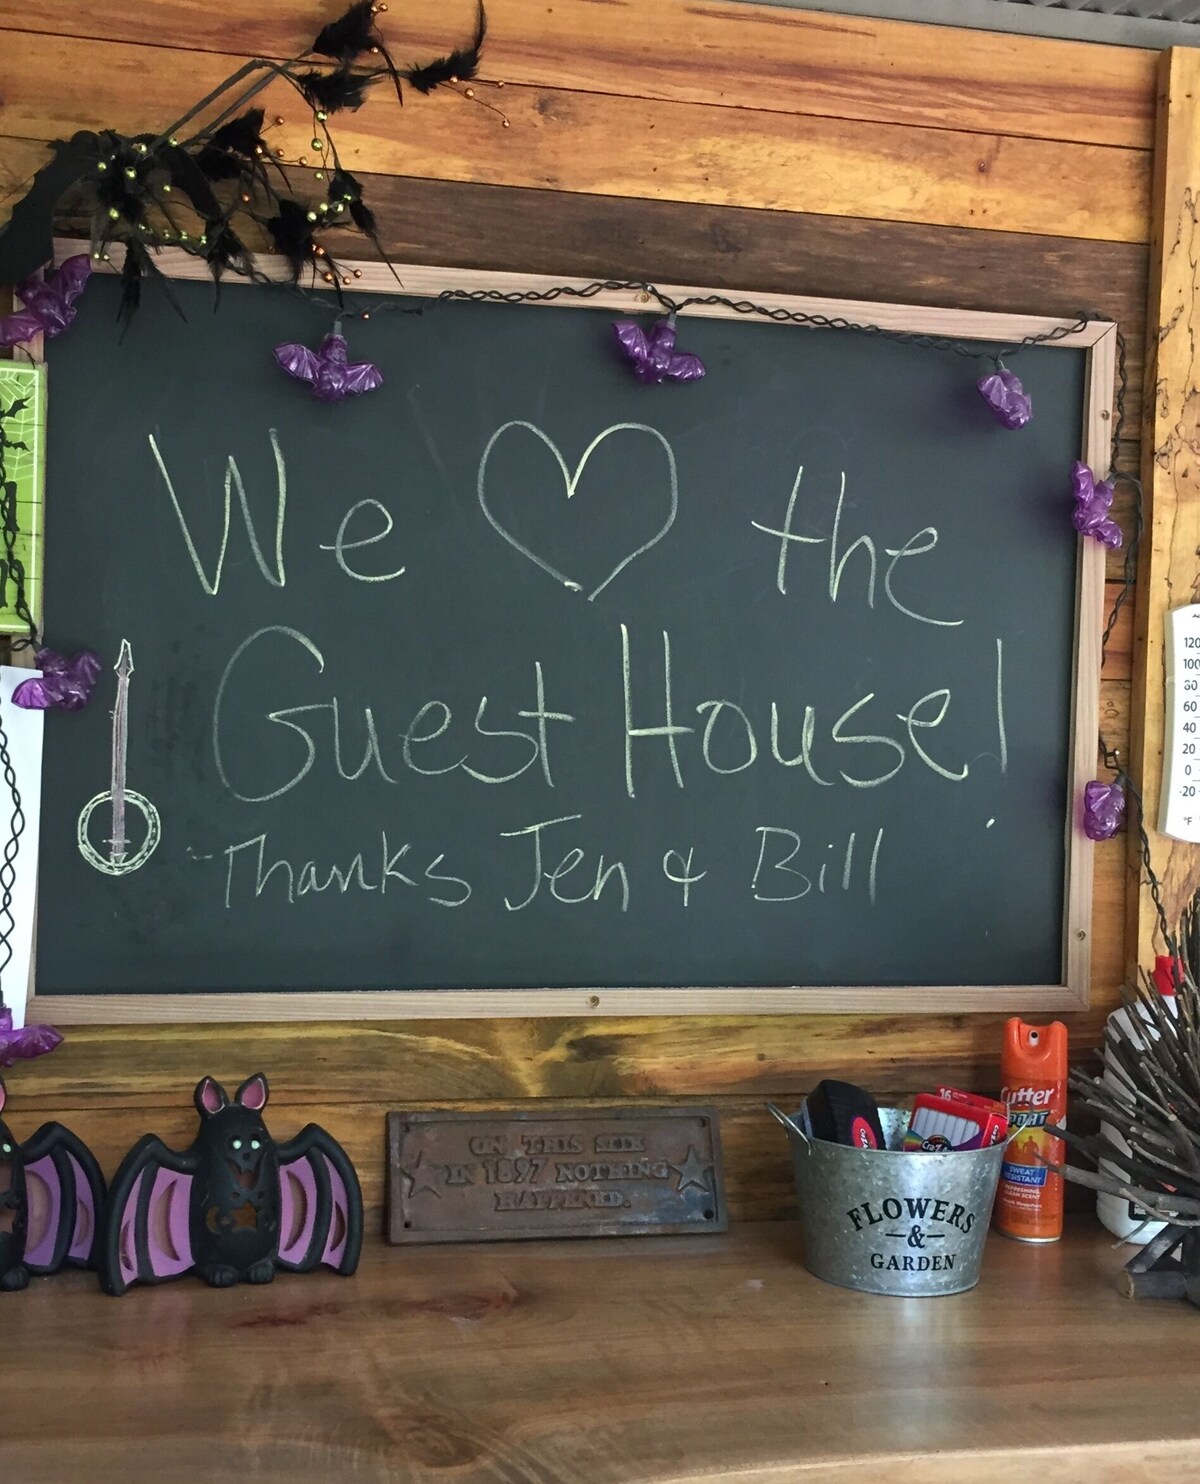 We ♡ the
Guest House!
Thanks Jen & Bill
120
100
80
60
40
20
0
-20
°F
ON THIS SITE
IN 1897 NOTHING
HAPPENED.
FLOWERS
&
GARDEN
16
Cutter
SPORT
SWEAT
RESISTANT
REFRESHING
CLEAN SCENT